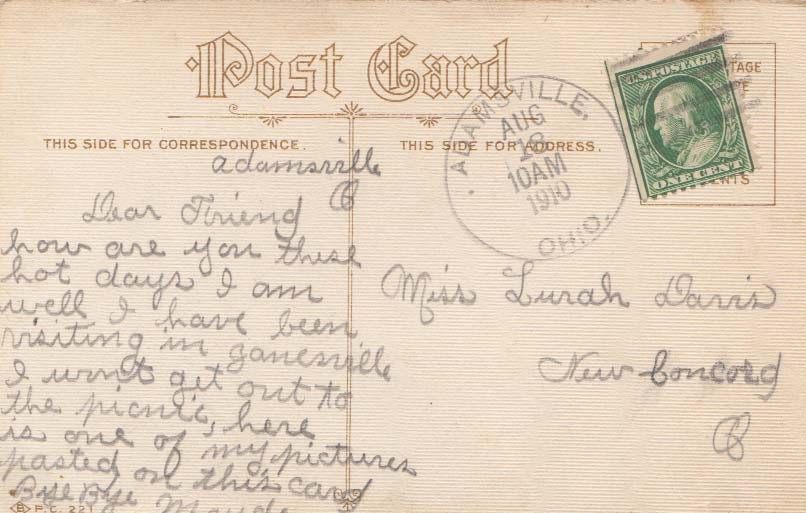 Post Card
THIS SIDE FOR CORRESPONDENCE.
THIS SIDE FOR ADDRESS.
ADAMSVILLE,
AUG
18
10AM
1910
OHIO.
U.S. POSTAGE
ONE CENT
Adamsville
O
Dear Friend
how are you these
hot days I am
well I have been
visiting in Zanesville
I wont get out to
the picnic, here
is one of my pictures
pasted on this card
Bye Bye
P.C. 221
Miss Lurah Davis
New Concord
O